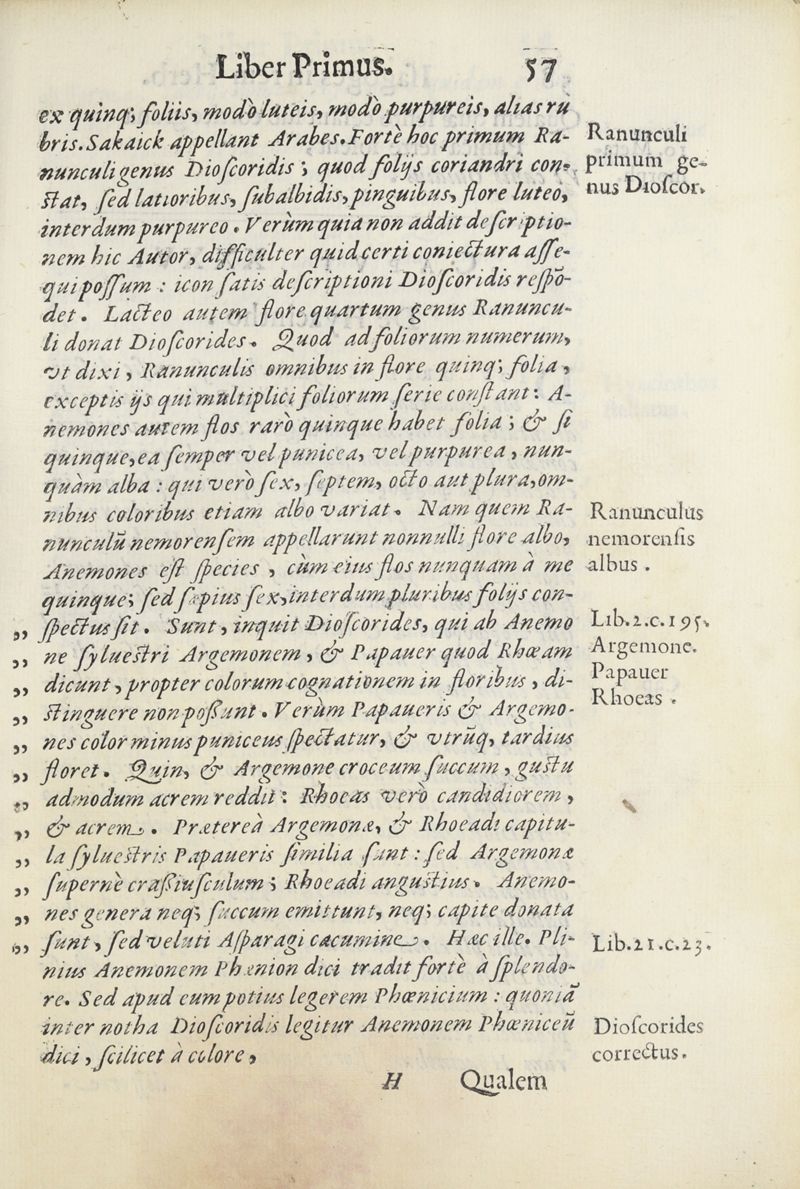 Liber Primus. 57
ex quinq; foliis, modò luteis, modò purpureis, alias ru
bris. Sakaick appellant Arabes. Fortè hoc primum Ra-
nunculi genus Dioſcoridis; quod folijs coriandri con-
ſtat, ſed latioribus, ſubalbidis, pinguibus, flore luteo,
interdum purpureo. Verùm quia non addit deſcriptio-
nem hic Autor, difficulter quid certi coniectura aſſe-
qui poſſum: icon ſatis deſcriptioni Dioſcoridis reſpõ-
det. Lacteo autem flore quartum genus Ranuncu-
li donat Dioſcorides. Quod ad foliorum numerum,
vt dixi, Ranunculis omnibus in flore quinq; folia,
exceptis ijs qui multiplici foliorum ſerie conſtant: A-
nemones autem flos rarò quinque habet folia; & ſi
quinque, ea ſemper vel punicea, vel purpurea, nun-
quàm alba: qui verò ſex, ſeptem, octo aut plura, om-
nibus coloribus etiam albo variat. Nam quem Ra-
nunculũ nemorenſem appellarunt nonnulli flore albo,
Anemones eſt ſpecies, cùm eius flos nunquam à me
quinque; ſed ſæpius ſex, interdum pluribus folijs con-
„ ſpectus ſit. Sunt, inquit Dioſcorides, qui ab Anemo
„ ne ſylueſtri Argemonem, & Papauer quod Rhœam
„ dicunt, propter colorum cognationem in floribus, di-
„ ſtinguere non poſſunt. Verùm Papaueris & Argemo-
„ nes color minus puniceus ſpectatur, & vtrũq, tardius
„ floret. Quin, & Argemone croceum ſuccum, guſtu
„ admodum acrem reddit: Rhoeas verò candidiorem,
„ & acrem. Prætereà Argemonæ, & Rhoeadi capitu-
„ la ſylueſtris Papaueris ſimilia ſunt: ſed Argemonæ
„ ſupernè craſſiuſculum; Rhoeadi anguſtius. Anemo-
„ nes genera neq; ſuccum emittunt, neq; capite donata
„ ſunt, ſed veluti Aſparagi cacumine. Hæc ille. Pli-
nius Anemonem Phænion dici tradit fortè à ſplendo-
re. Sed apud eum potius legerem Phœnicium: quoniã
inter notha Dioſcoridis legitur Anemonem Phœniceũ
dici, ſcilicet à colore,
H Qualem
Ranunculi
primum ge-
nus Dioſcor.
Ranunculus
nemorenſis
albus.
Lib.2.c.195.
Argemone.
Papauer
Rhoeas.
Lib.21.c.23.
Dioſcorides
correctus.